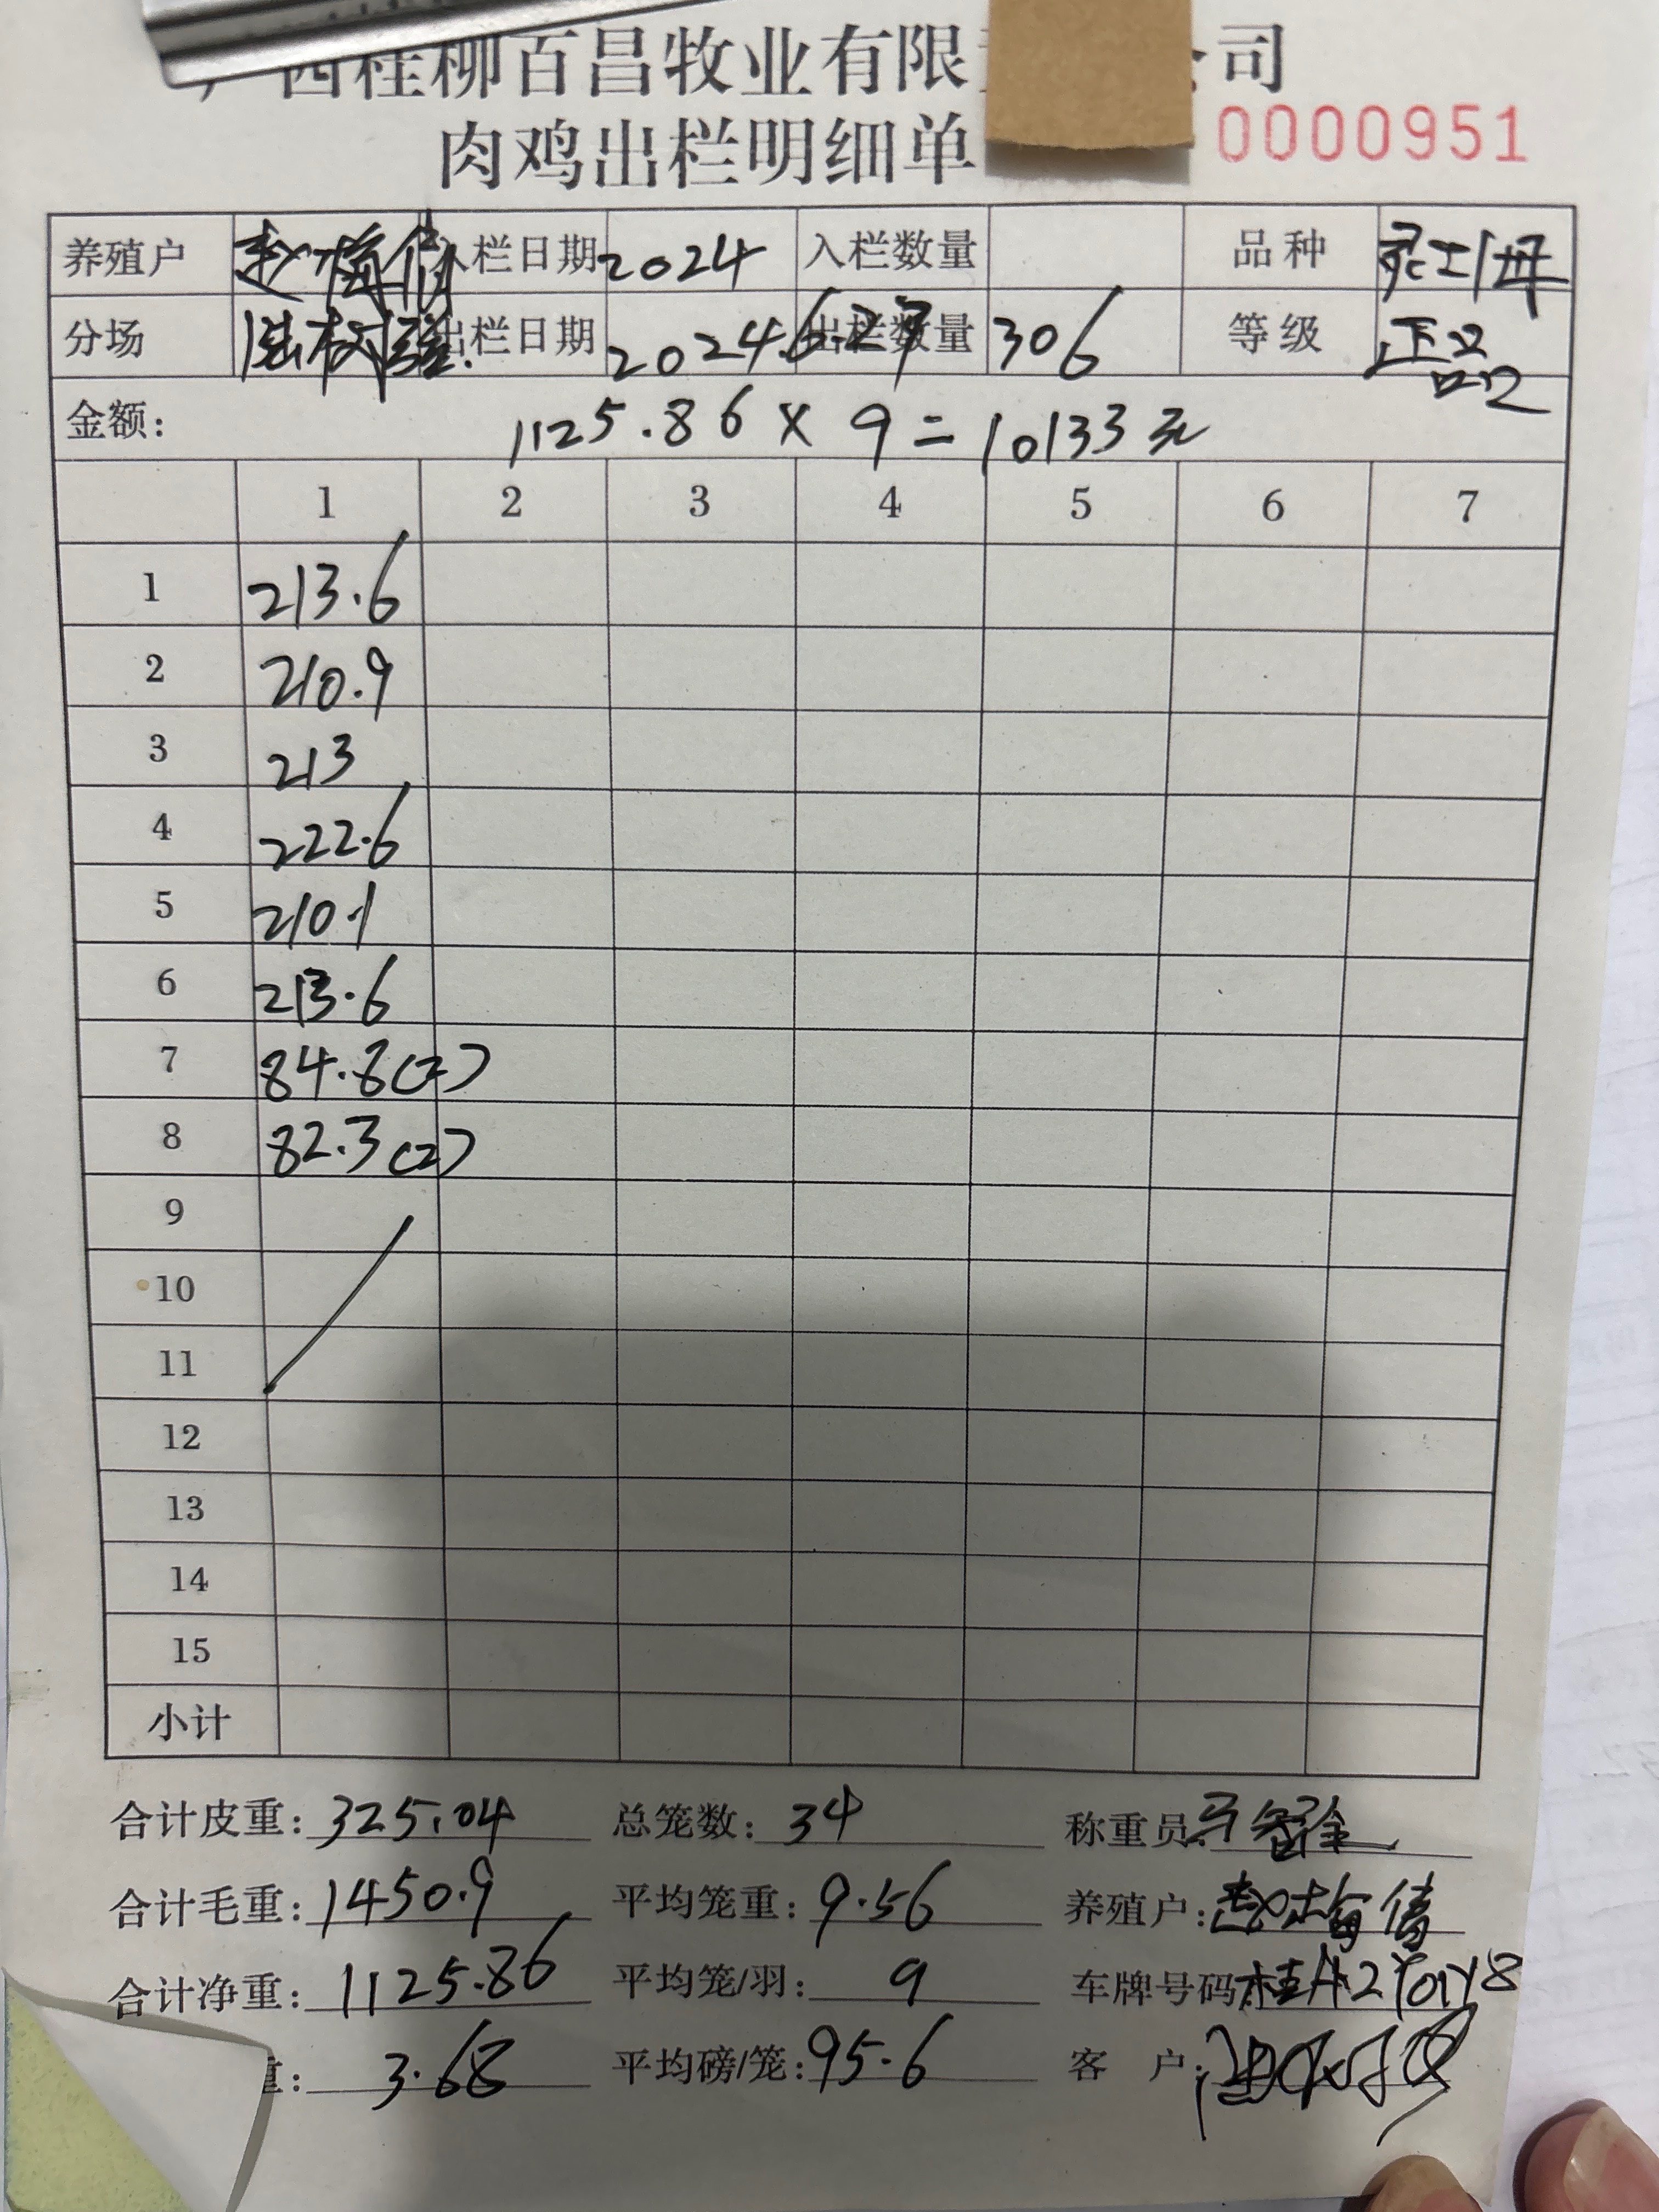 西桂柳百昌牧业有限 公司
肉鸡出栏明细单 0000951
养殖户 赵梅倩 入栏日期 2024 入栏数量 品种 灵土1母
分场 出栏日期 2024.6.27 出栏数量 306 等级 正品
金额: 1125.86 x 9 = 10133元
1 2 3 4 5 6 7
1 213.6
2 210.9
3 213
4 222.6
5 210.1
6 213.6
7 84.8(2)
8 82.3(2)
9
10
11
12
13
14
15
小计
合计皮重: 325.04 总笼数: 34 称重员:
合计毛重: 1450.9 平均笼重: 9.56 养殖户: 赵梅倩
合计净重: 1125.86 平均笼/羽: 9 车牌号码: 桂A2
重: 3.68 平均磅/笼: 95.6 客 户: